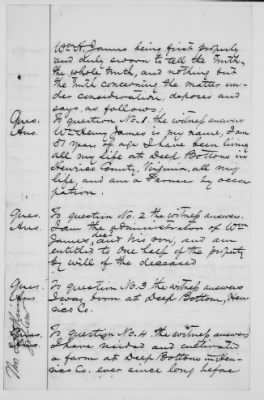 Wm H. James being first properly
and duly sworn to tell the truth,
the whole truth, and nothing but
the truth concerning the matter un-
der consideration, deposes and
says as follows.
Ques. To question No. 1. the witness answers
Ans. Wm Henry James is my name, I am
57 years of age I have been living
all my life at Deep Bottoms in
Henrico County, Virginia, all my
life, and am a Farmer by occu
pation.
Ques. To question No. 2 the witness answers.
Ans. I am the administrator of Wm
James, decd and his son, and am
entitled to one half of the property
by will of the deceased
Ques. To question No. 3 the witness answers
Ans. I was born at Deep Bottom, Hen-
rico Co.
Ques. To question No. 4. the witness answers
Ans. I have resided and cultivated
a farm at Deep Bottoms in Hen-
rico Co. ever since long before